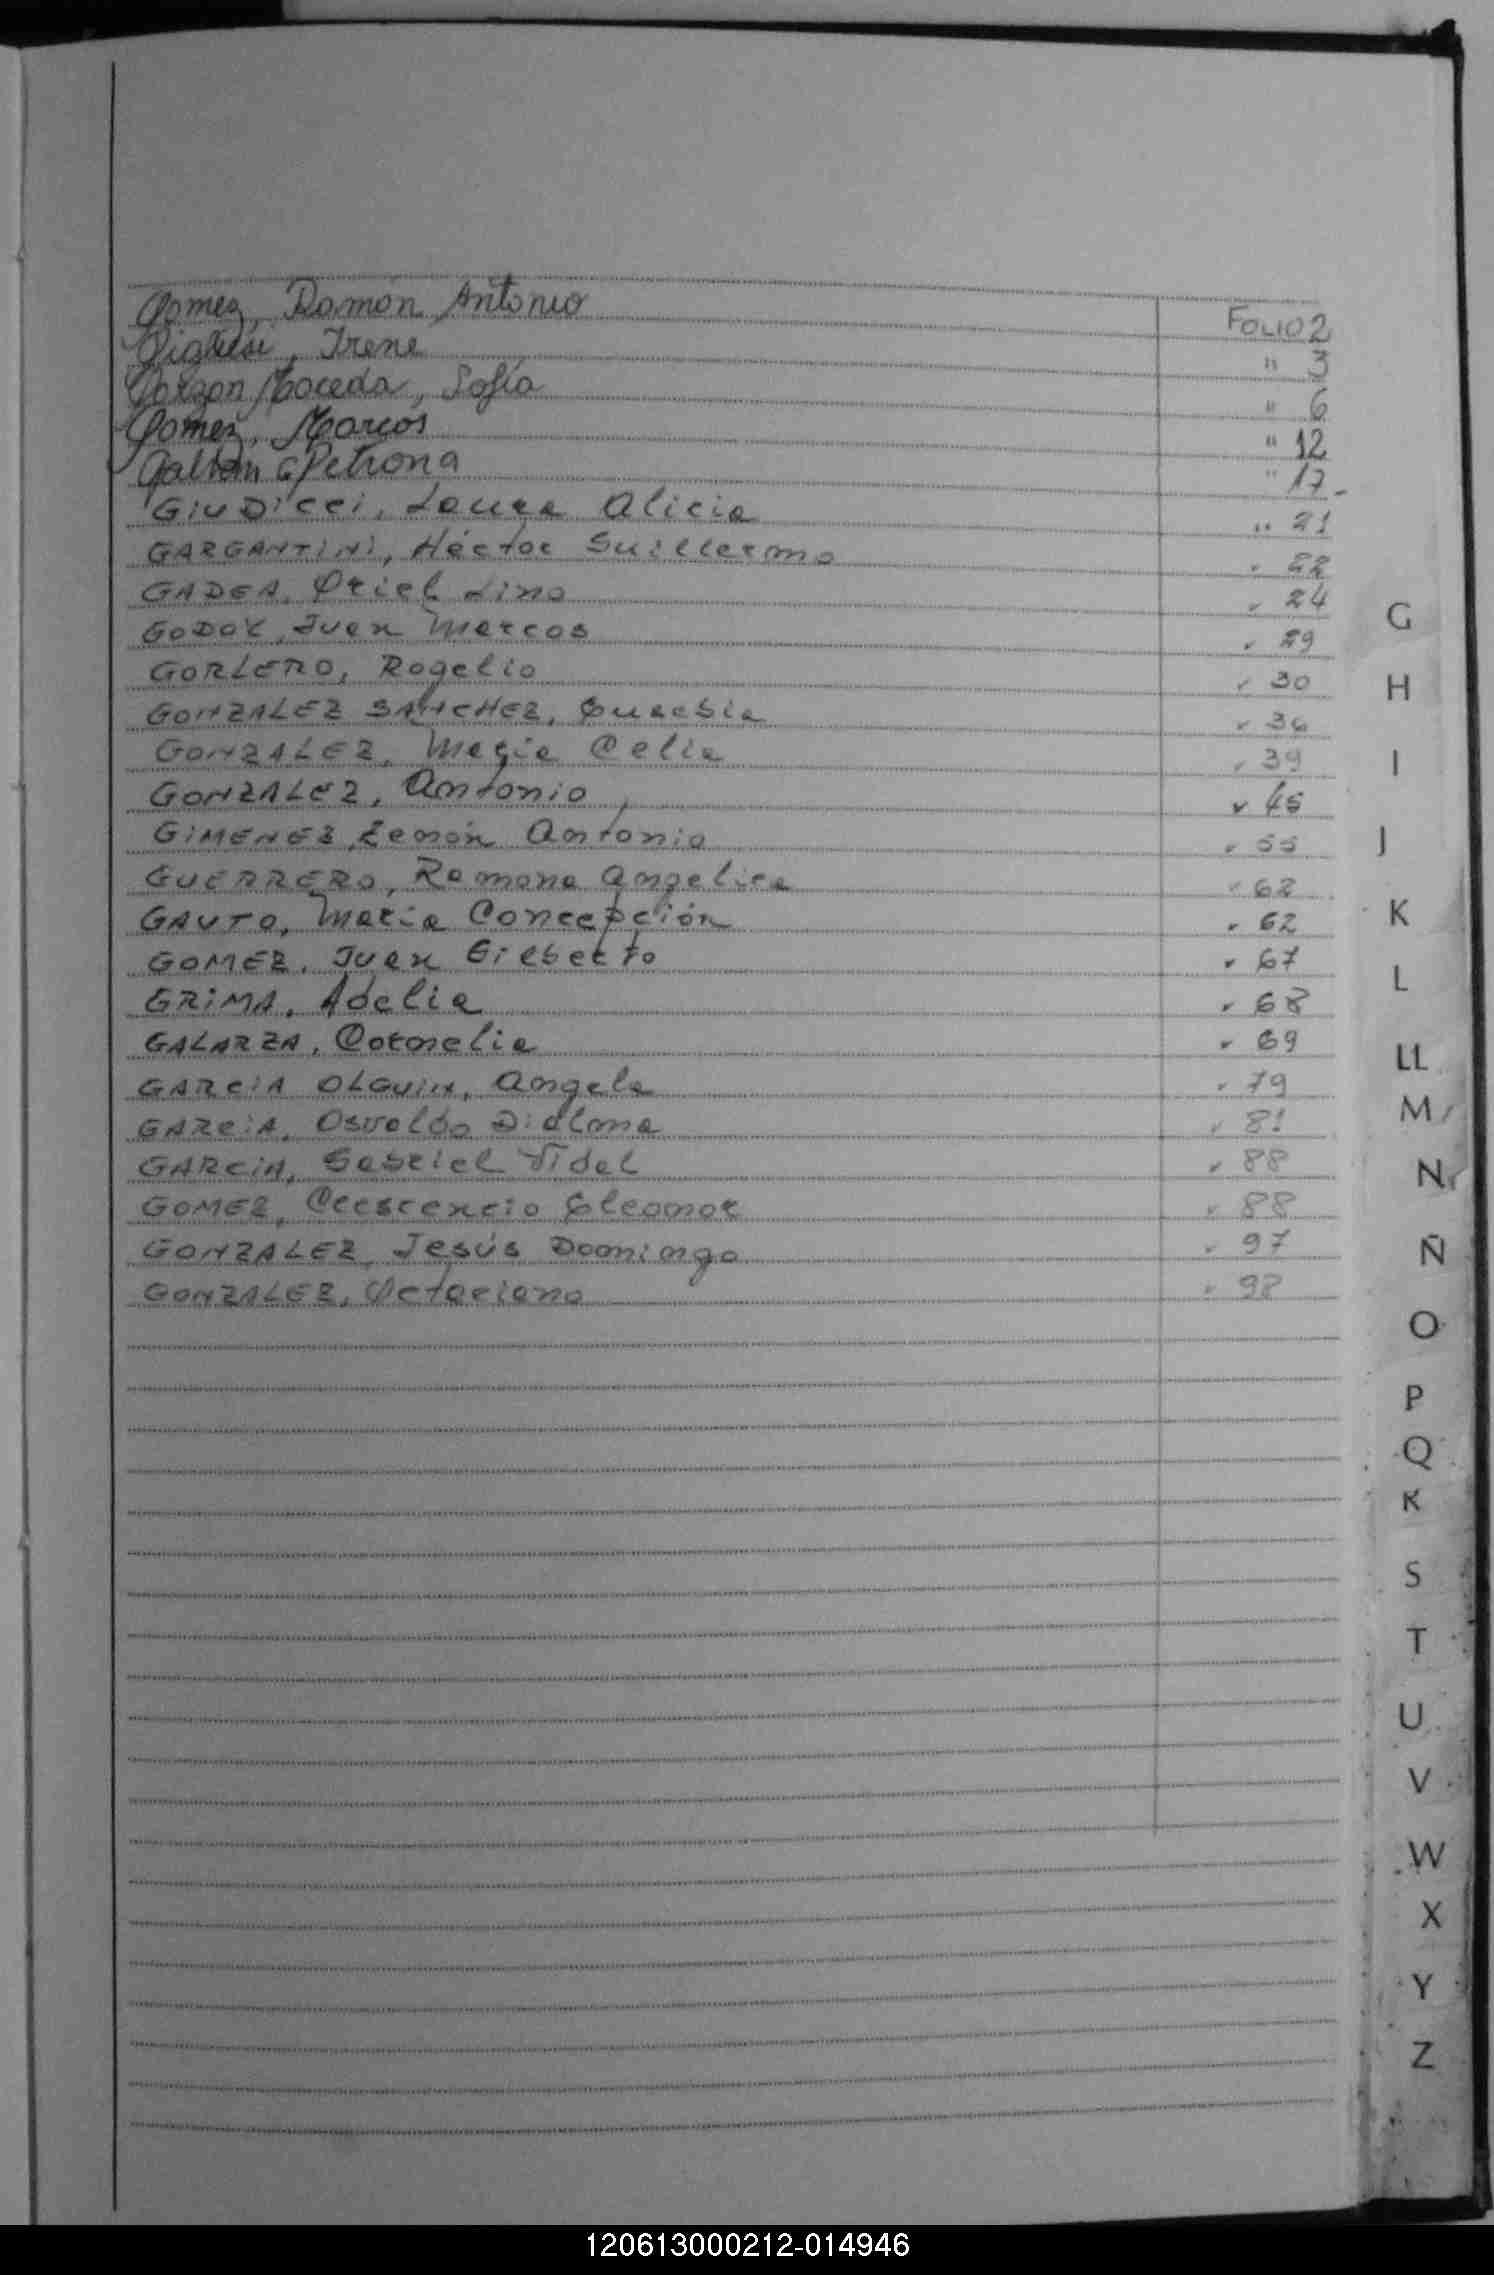 Gomez, Ramón Antonio FOLIO 2
Irene " 3
Garzon Maceda, Sofía " 6
Gomez, Marcos " 12
Petrona " 17-
GIUDICCI, Laura Alicia " 21
GARGANTINI, Héctor Guillermo " 22
GADEA, Oriel Lino " 24
GODOY, Juan Marcos " 29
GORLERO, Rogelio " 30
GONZALEZ SANCHEZ, Eusebia " 36
GONZALEZ, María Celia " 39
GONZALEZ, Antonio " 45
GIMENEZ, Zenón Antonio " 55
GUERRERO, Ramona Angelica " 62
GAUTO, María Concepción " 62
GOMEZ, Juan Gilberto " 67
GRIMA, Adelia " 68
GALARZA, Cornelia " 69
GARCIA OLGUIN, Angela " 79
GARCIA, Osvaldo Dialma " 81
GARCIA, Gabriel Vidal " 88
GOMEZ, Crescencio Eleonor " 88
GONZALEZ, Jesús Domingo " 97
GONZALEZ, Octaciano " 98
G
H
I
J
K
L
LL
M
N
Ñ
O
P
Q
R
S
T
U
V
W
X
Y
Z
120613000212-014946